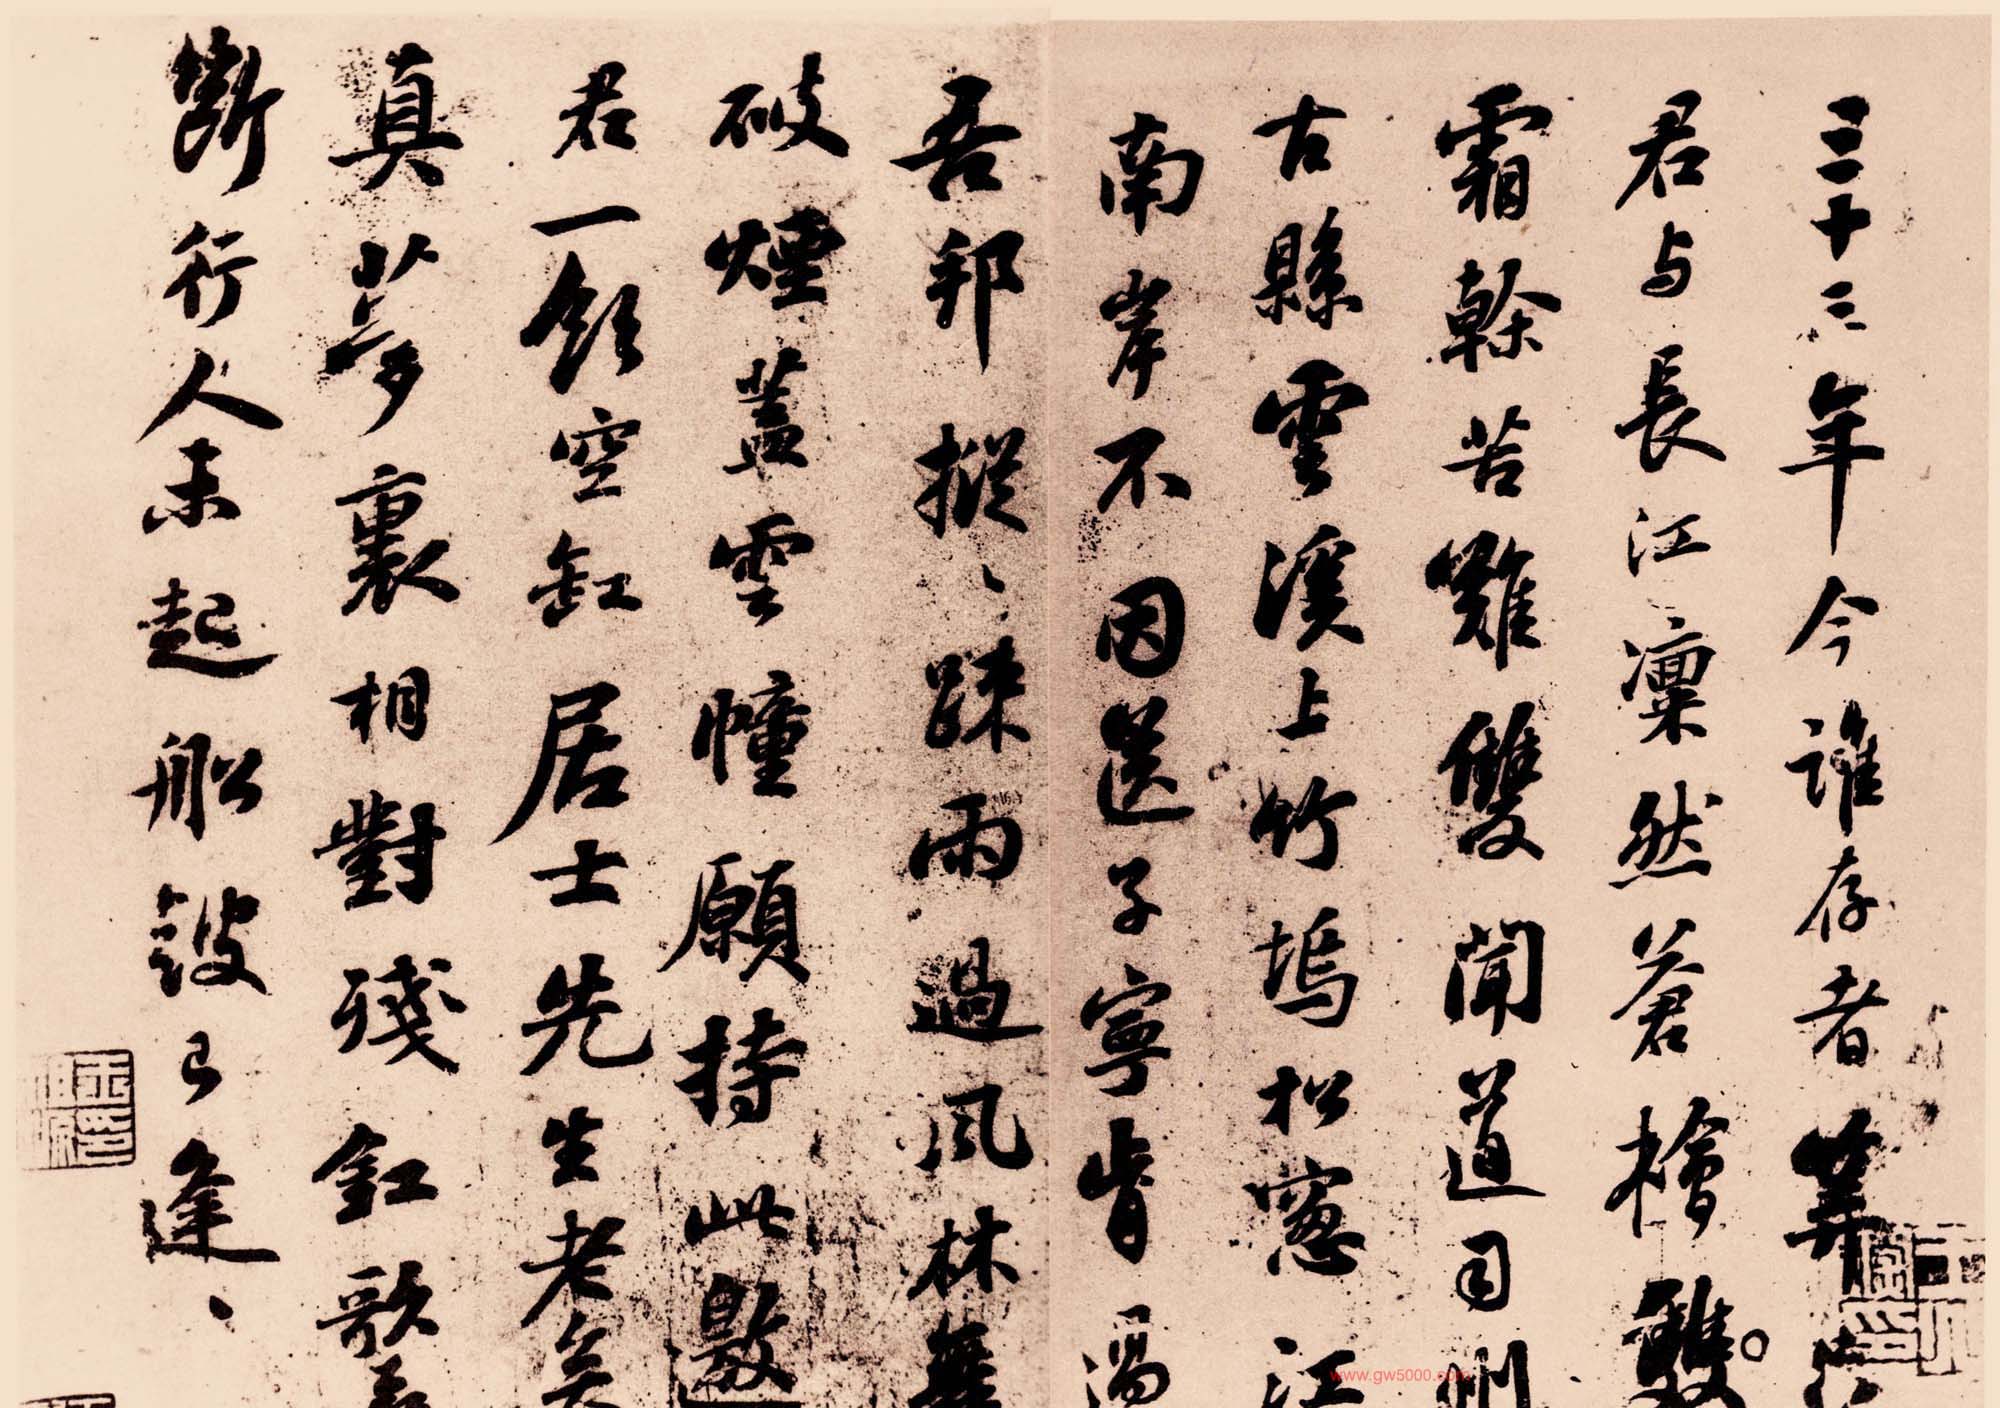 三十三年今誰存者算
君与長江凜然蒼檜
霜幹苦難雙聞道司州
古縣雲溪上竹塢松窓江
南岸不因送子寧肯過
吾邦摐〻踈雨過風林舞
破煙蓋雲幢願持此邀
君一飲空缸居士先生老矣
真夢裏相對殘釭歌
斷行人未起船鼓已逢〻
www.gw5000.com